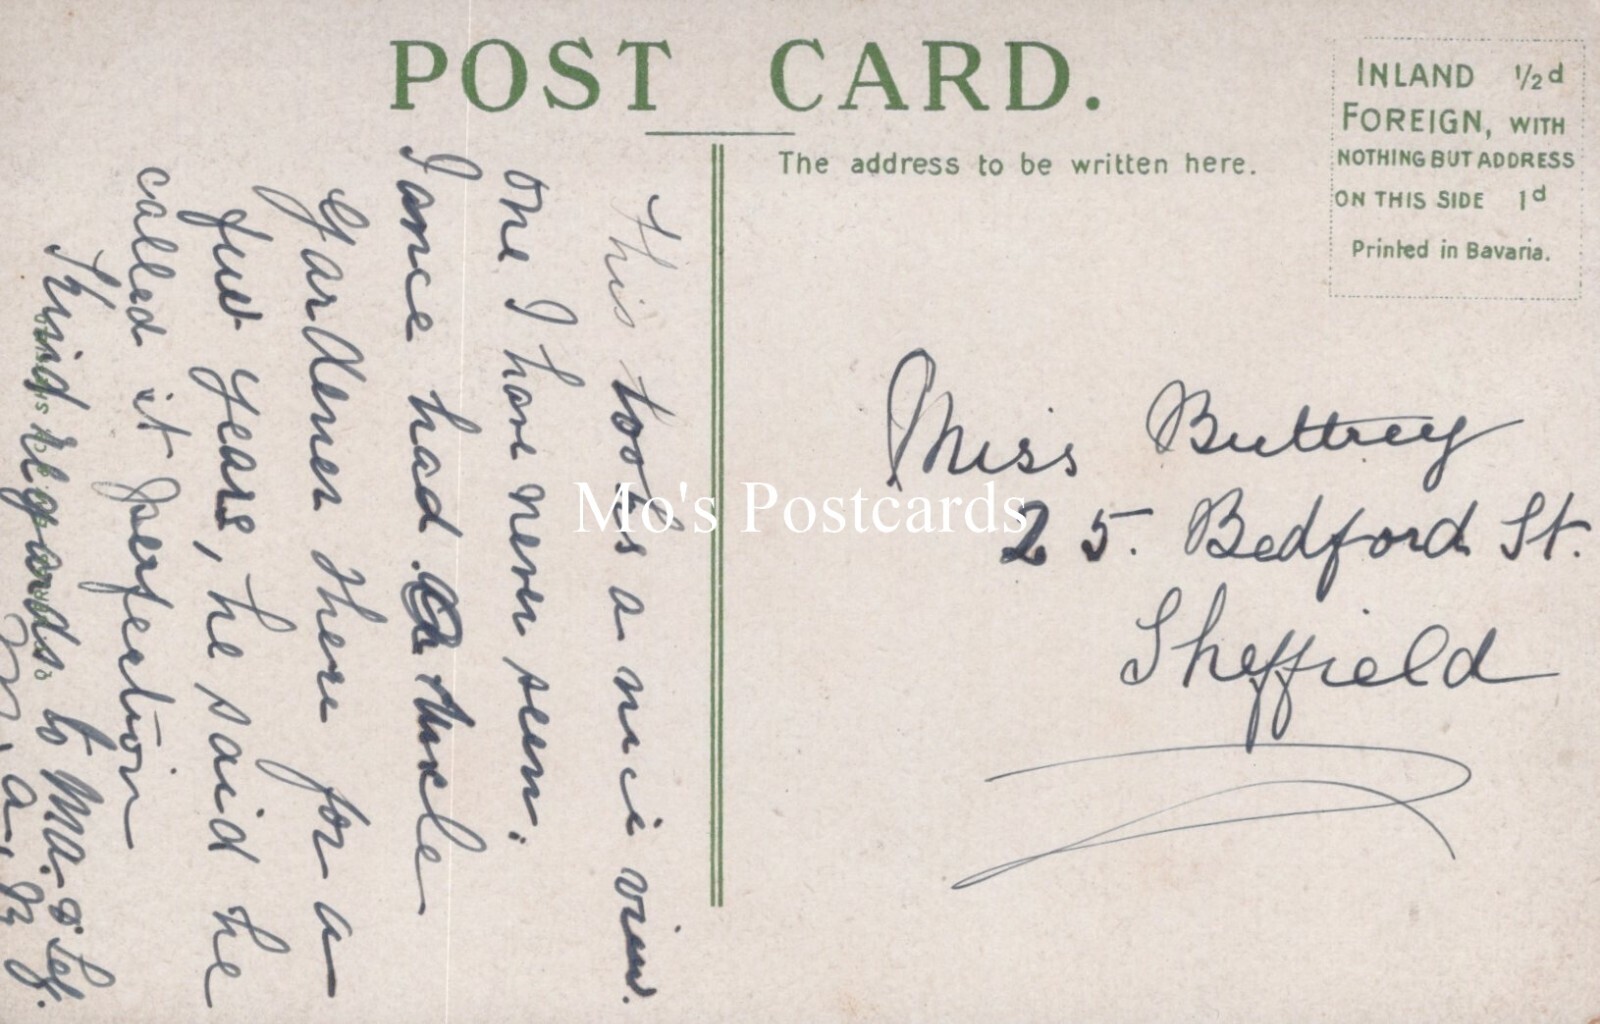 POST CARD.
The address to be written here.
INLAND ½d
FOREIGN, WITH
NOTHING BUT ADDRESS
ON THIS SIDE 1d
Printed in Bavaria.
This looks a nice view.
one I have never seen.
I once had a Uncle
Gardener there for a
few years, he said he
called it perfection
Kind regards to Ma. &
Miss Buttrey
25. Bedford St.
Sheffield
Mo's Postcards